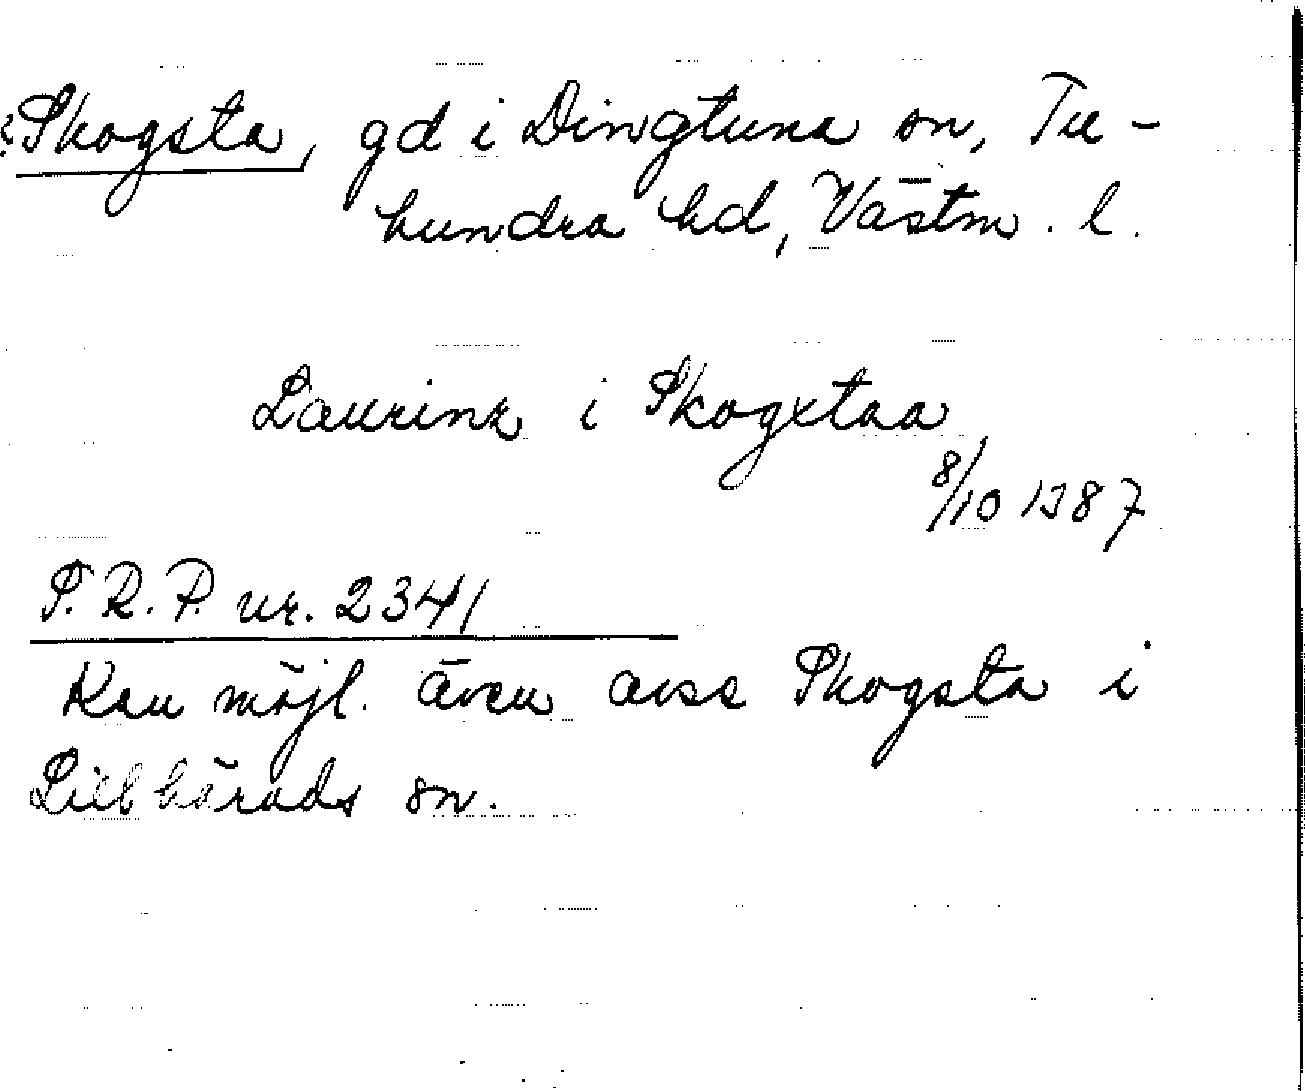 ? Skogsta, gd i Dingtuna sn, Tu-
hundra hd, Västm. l.
Laurinz i Skogxtaa
8/10 1387
S.R.P. nr. 2341
Kan möjl. även avse Skogsta i
Lillhärads sn.